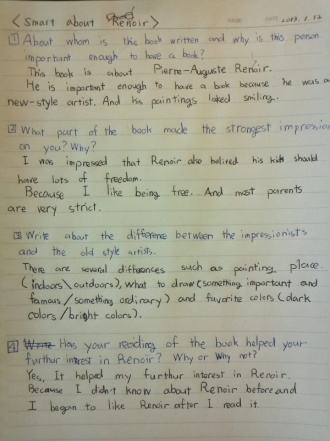 < Smart about Renoir>
DATE 2013. 1. 12
1 About whom is this book written and why is this person
important enough to have a book?
This book is about Pierre-Auguste Renoir.
He is important enough to have a book because he was a
new-style artist. And his paintings looked smiling.
2 What part of the book made the strongest impression
on you? Why?
I was impressed that Renoir also belived his kids should
have lots of freedom.
Because I like being free. And most parents
are very strict.
3 Write about the difference between the impressionists
and the old style artists.
There are several differences such as painting place
(indoors\outdoors), what to draw (something important and
famous/something ordinary) and favorite colors (dark
colors/bright colors).
4 Has your reading of the book helped your
furthur interest in Renoir? Why or Why not?
Yes, It helped my furthur interest in Renoir.
Because I didn't know about Renoir before and
I began to like Renoir after I read it.